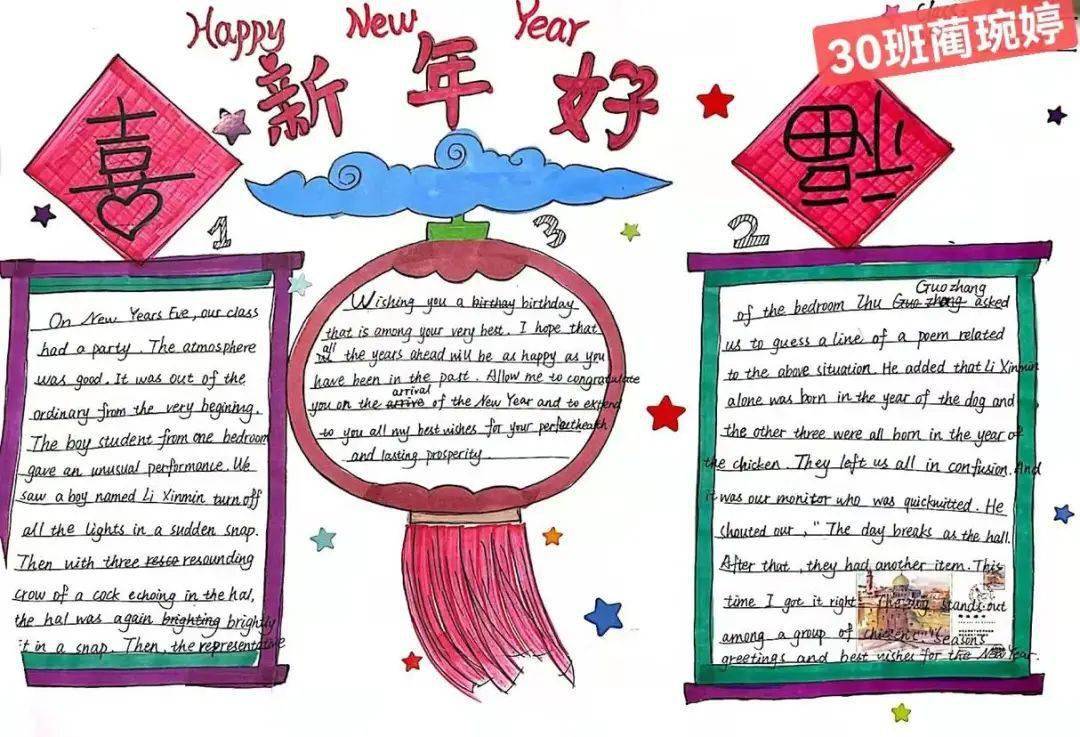 Happy New Year
Class
30班蔺琬婷
新年好
喜
福
1
On New Years Eve, our class
had a party. The atmosphere
was good. It was out of the
ordinary from the very begining.
The boy student from one bedroom
gave an unusual performance. We
saw a boy named Li Xinmin turn off
all the lights in a sudden snap.
Then with three resco resounding
crow of a cock echoing in the hal,
the hal was again brighting brightly
it in a snap. Then, the representative
2
Guozhang
of the bedroom Zhu Guo zhang asked
us to guess a line of a poem related
to the above situation. He added that Li Xinmin
alone was born in the year of the dog and
the other three were all born in the year of
the chicken. They left us all in confusion. And
it was our monitor who was quickwitted. He
shouted our, "The day breaks as the hall.
After that, they had another item. This
time I got it right. The dog stands out
among a group of chickens" Seasons
greetings and best wishes for the New Year.
3
Wishing you a birthay birthday
that is among your very best. I hope that
all
the years ahead will be as happy as you
have been in the past. Allow me to congratulate
arrival
you on the arrive of the New Year and to extend
to you all my best wishes for your perfect health
and lasting prosperity.